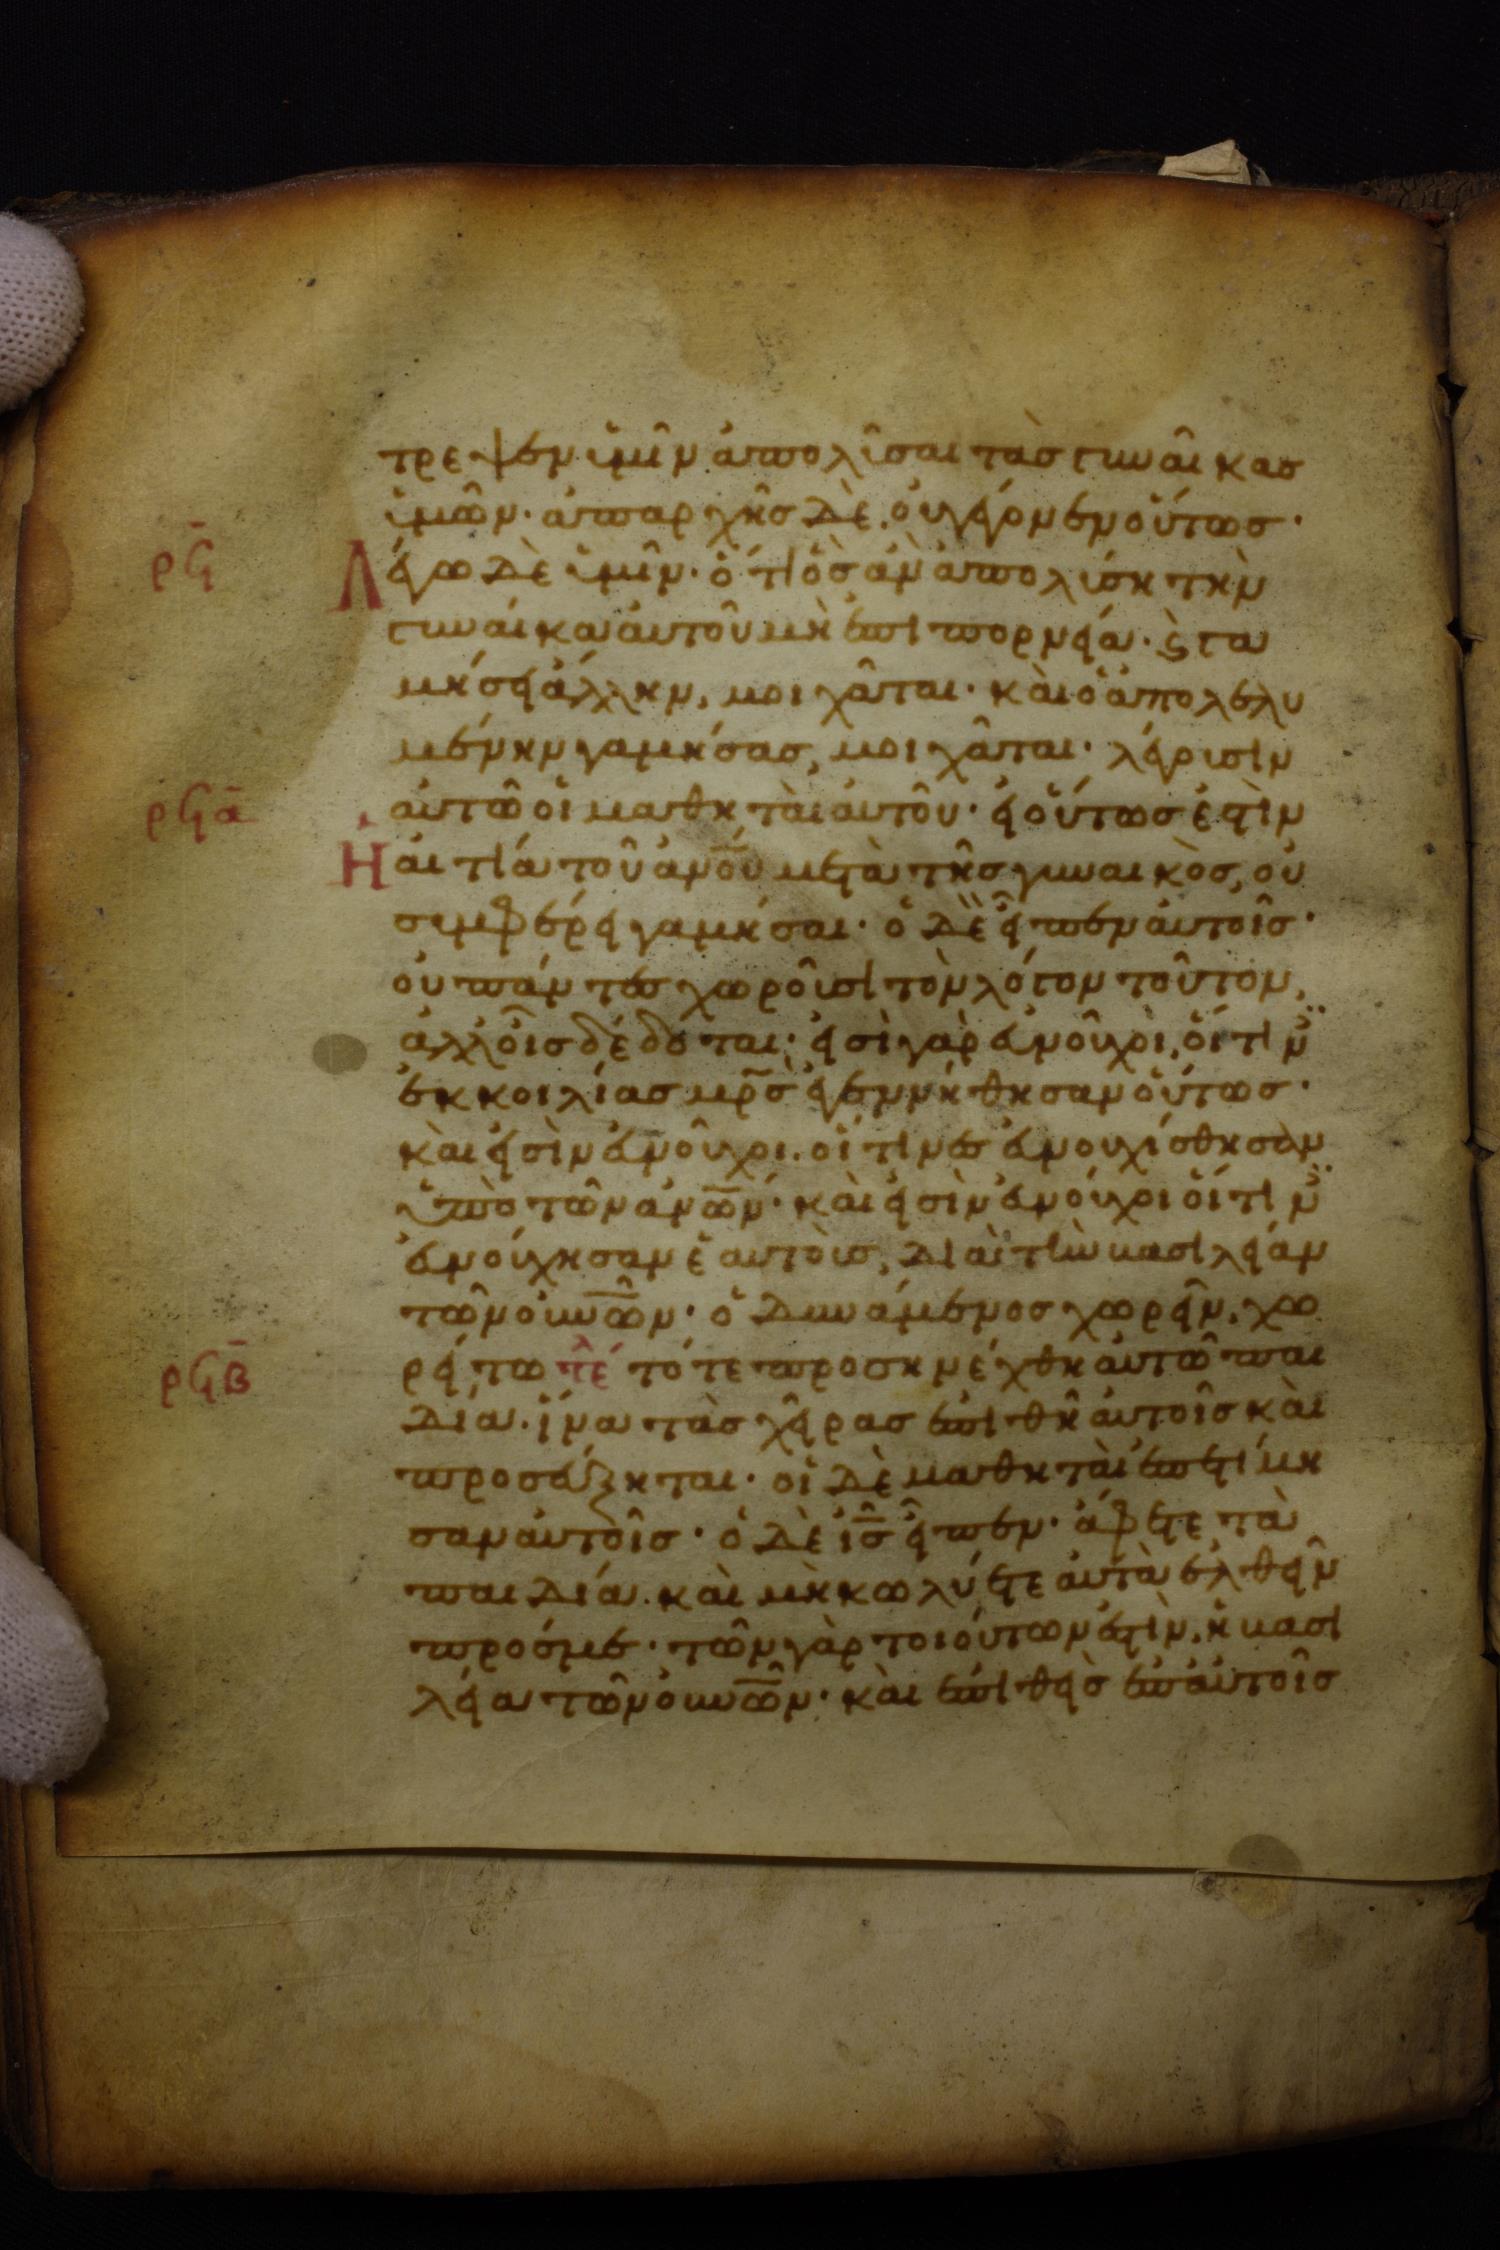 τρεψεν ὑμῖν ἀπολῦσαι τὰσ γυναῖκασ
ὑμῶν· ἀπαρχῆσ δὲ, οὐ γέγονεν οὕτωσ·
ρϟ Λέγω δὲ ὑμῖν· ὅτι ὃσ ἀν ἀπολύση τὴν
γυναίκα αὐτοῦ μὴ ἐπὶ πορνεία· ϛ γα
μήσει ἄλλην, μοιχᾶται· καὶ ὁ ἀπολελυ
μένην γαμήσασ, μοιχᾶται· λέγουσιν
ρϟα αὐτῶ οἱ μαθηταὶ αὐτοῦ· εἰ οὕτωσ ἐστὶν
Ἡ αἰτία τοῦ ἀνου μετὰ τῆσ γυναικὸσ, οὐ
συμφέρει γαμῆσαι· ὁ δὲ εἶπεν αὐτοῖσ·
οὐ πάντεσ χωροῦσι τὸν λόγον τοῦτον,
ἀλλοἷσ δέδοται· εἰσὶ γὰρ εὐνοῦχοι, οἵτιν
ἐκ κοιλίασ μρσ ἐγεννήθησαν οὕτωσ·
καὶ εἰσὶν εὐνοῦχοι. οἵτινεσ εὐνουχίσθησαν
ὑπὸ τῶν ἀνων· καὶ εἰσὶν εὐνοῦχοι οἵτιν
εὐνούχησαν ἑαυτοὶσ, διὰ τὴν βασιλείαν
τῶν οὐνων· ὁ δυνάμενοσ χωρεῖν, χω
ρϟβ ρείτω τε τότε προσηνέχθη αὐτῶ παι
δία. ἵνα τὰσ χεῖρασ ἐπιθῆ αὐτοῖσ καὶ
προσεύξηται· οἱ δὲ μαθηταὶ ἐπετίμη
σαν αὐτοῖσ· ὁ δὲ ισ εἶπεν· ἄφετε τὰ
παιδία. καὶ μὴ κωλύετε αὐτὰ ἐλθεῖν
πρόσμε· τῶν γὰρ τοιούτων ἐστὶν, ἡ βασι
λεία τῶν οὐνων· καὶ ἐπιθεὶσ ἐπ αὐτοῖσ